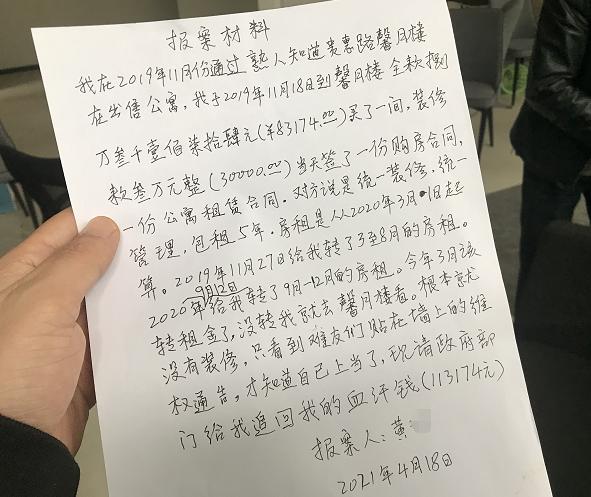 报案材料
我在2019年11月份通过熟人知道美惠路馨月楼
在出售公寓,我于2019年11月18日到馨月楼全款捌
万叁千壹佰柒拾肆元(¥83174.00)买了一间,装修
款叁万元整(30000.00)当天签了一份购房合同,
一份公寓租赁合同.对方说是统一装修.统一
管理,包租5年.房租是从2020年3月1日起
算。2019年11月27日给我转了3至8月的房租。
2020年9月12日给我转了9月-12月的房租。今年3月该
转租金了,没转我就去馨月楼看。根本就
没有装修,只看到难友们贴在墙上的维
权通告,才知道自己上当了,现请政府部
门给我追回我的血汗钱(113174元)
报案人:黄
2021年4月18日